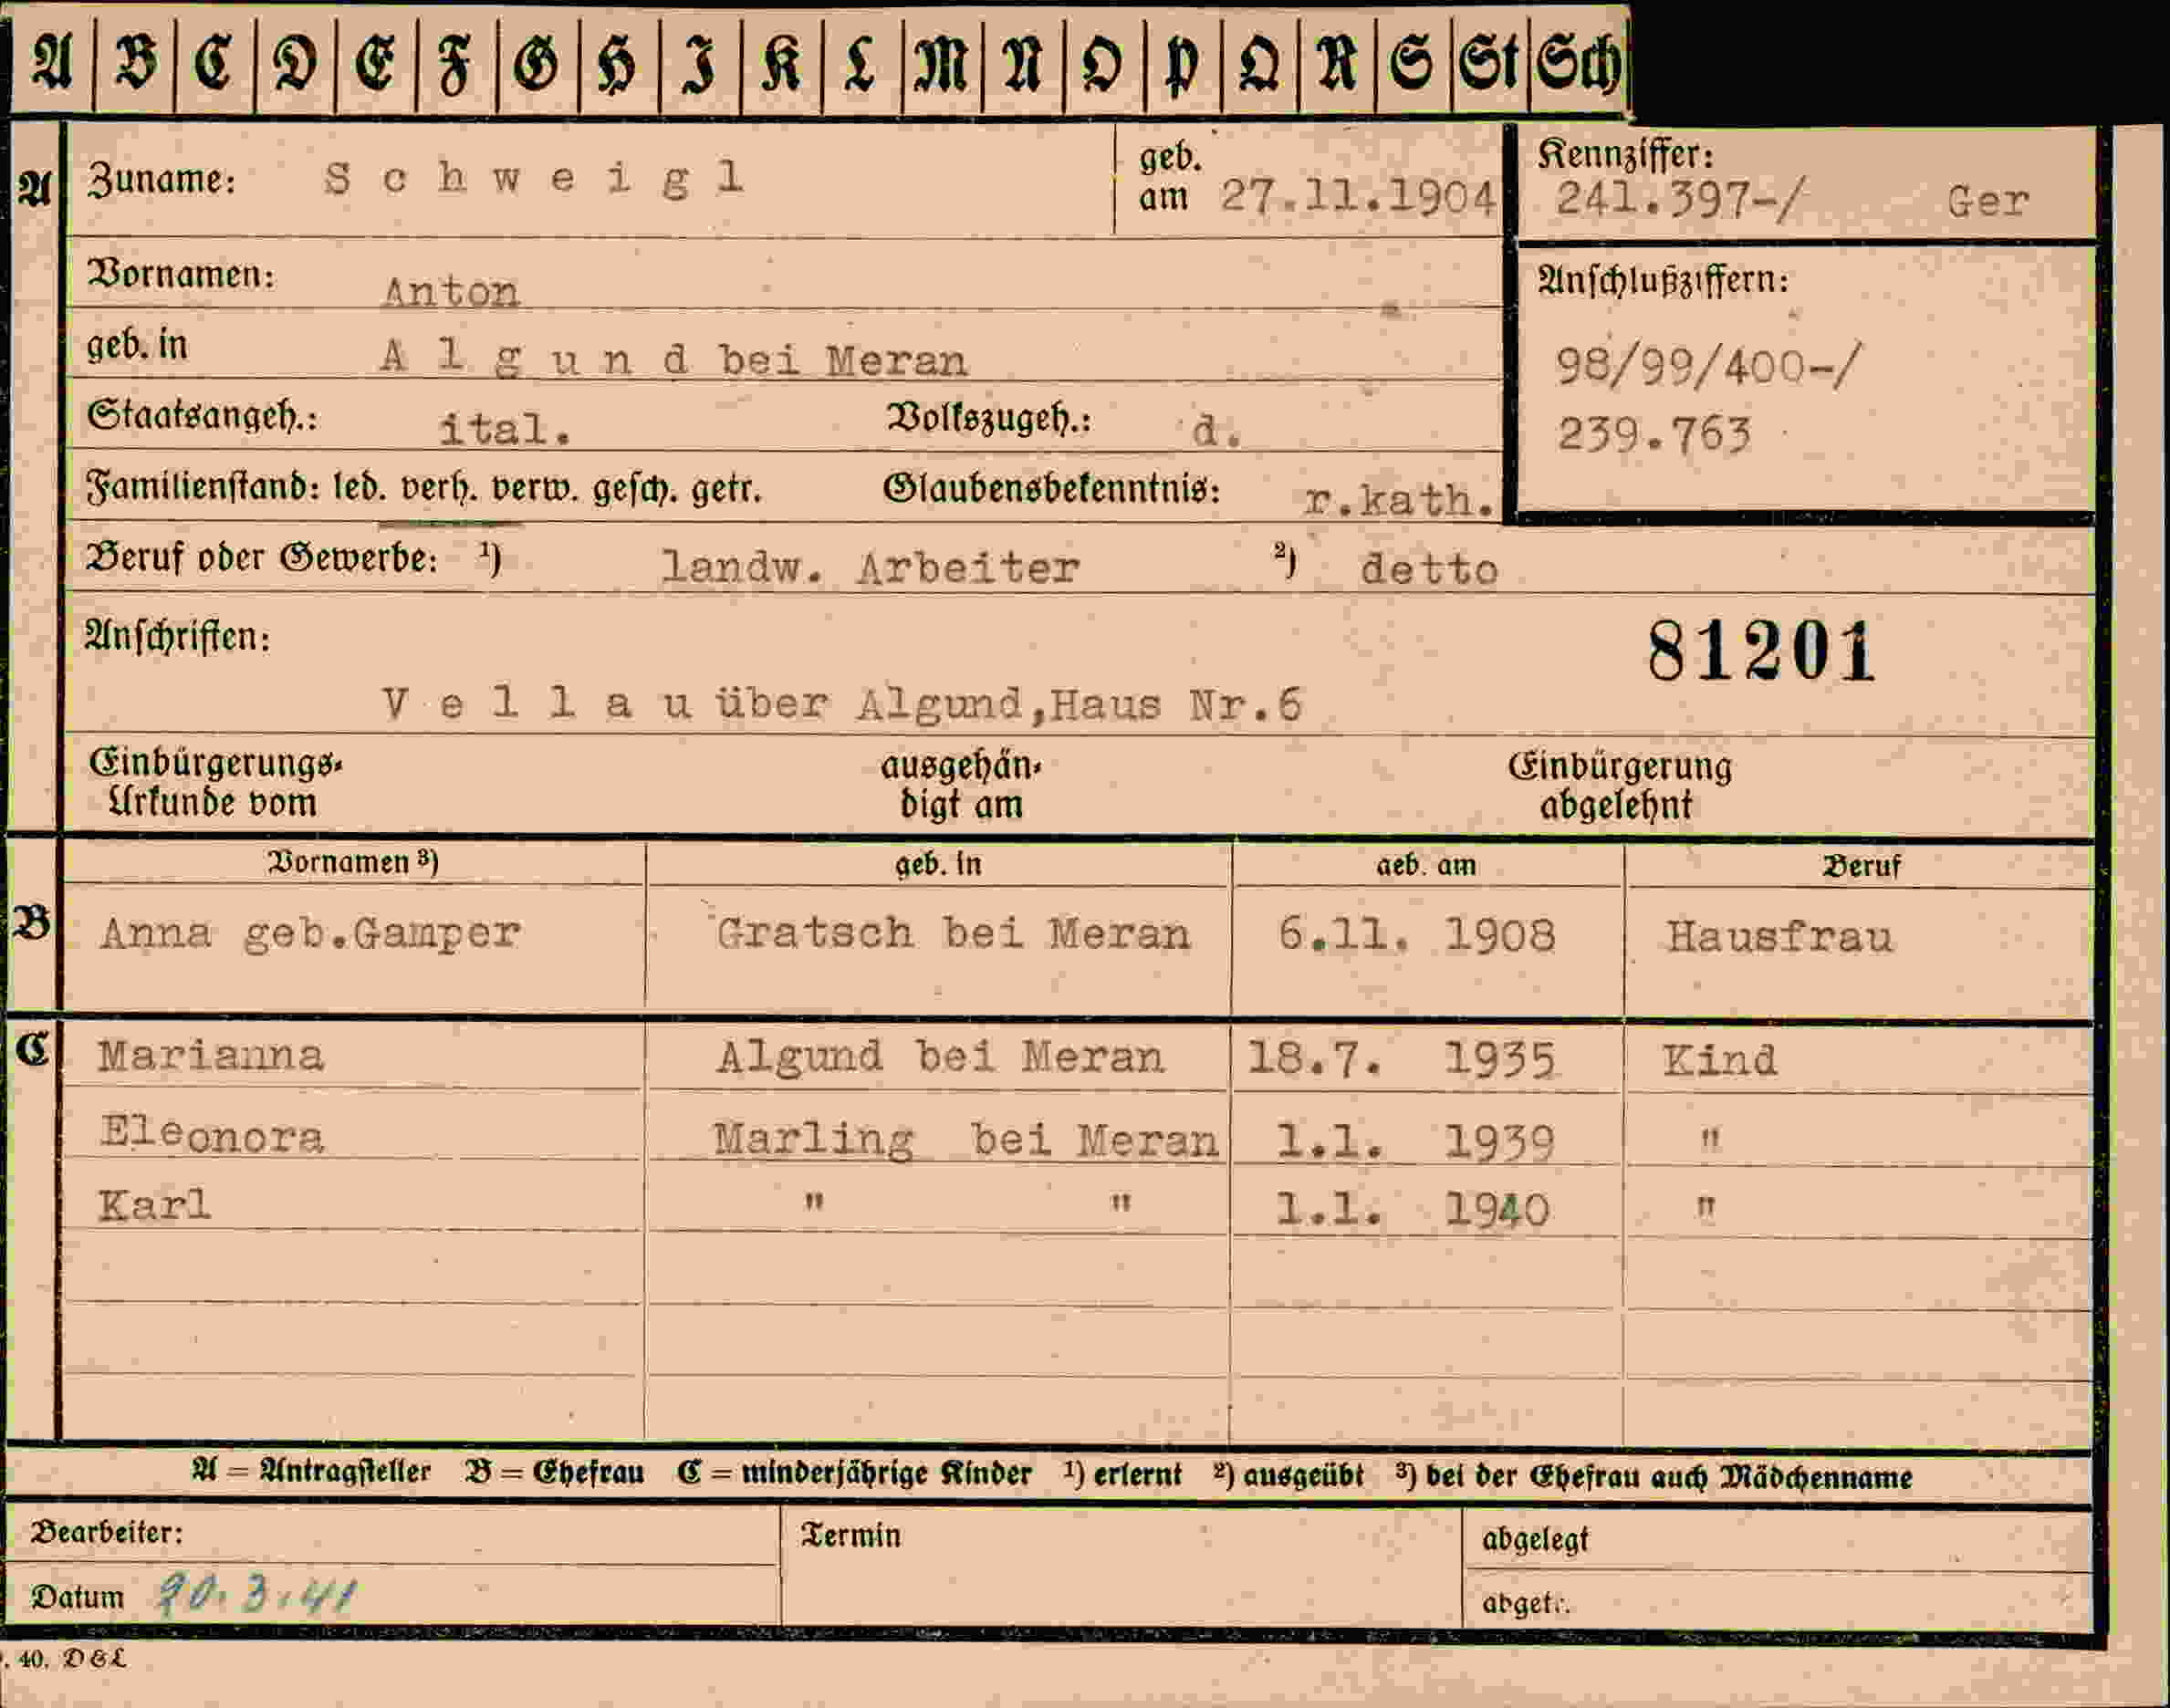 A B C D E F G H I K L M N O P Q R S St Sch
A Zuname: Schweigl geb. am 27.11.1904 Kennziffer: 241.397-/ Ger
Vornamen: Anton Anschlußziffern:
geb. in Algund bei Meran 98/99/400-/
Staatsangeh.: ital. Volkszugeh.: d. 239.763
Familienstand: led. verh. verw. gesch. getr. Glaubensbekenntnis: r.kath.
Beruf oder Gewerbe: ¹) landw. Arbeiter ²) detto
Anschriften: 81201
Vellau über Algund,Haus Nr.6
Einbürgerungs- ausgehän- Einbürgerung
Urkunde vom digt am abgelehnt
Vornamen ³) geb. in geb. am Beruf
B Anna geb.Gamper Gratsch bei Meran 6.11. 1908 Hausfrau
C Marianna Algund bei Meran 18.7. 1935 Kind
Eleonora Marling bei Meran 1.1. 1939 "
Karl " " 1.1. 1940 "
A = Antragsteller B = Ehefrau C = minderjährige Kinder ¹) erlernt ²) ausgeübt ³) bei der Ehefrau auch Mädchenname
Bearbeiter: Termin abgelegt
Datum 20.3.41 abgetr.
. 40. D&L